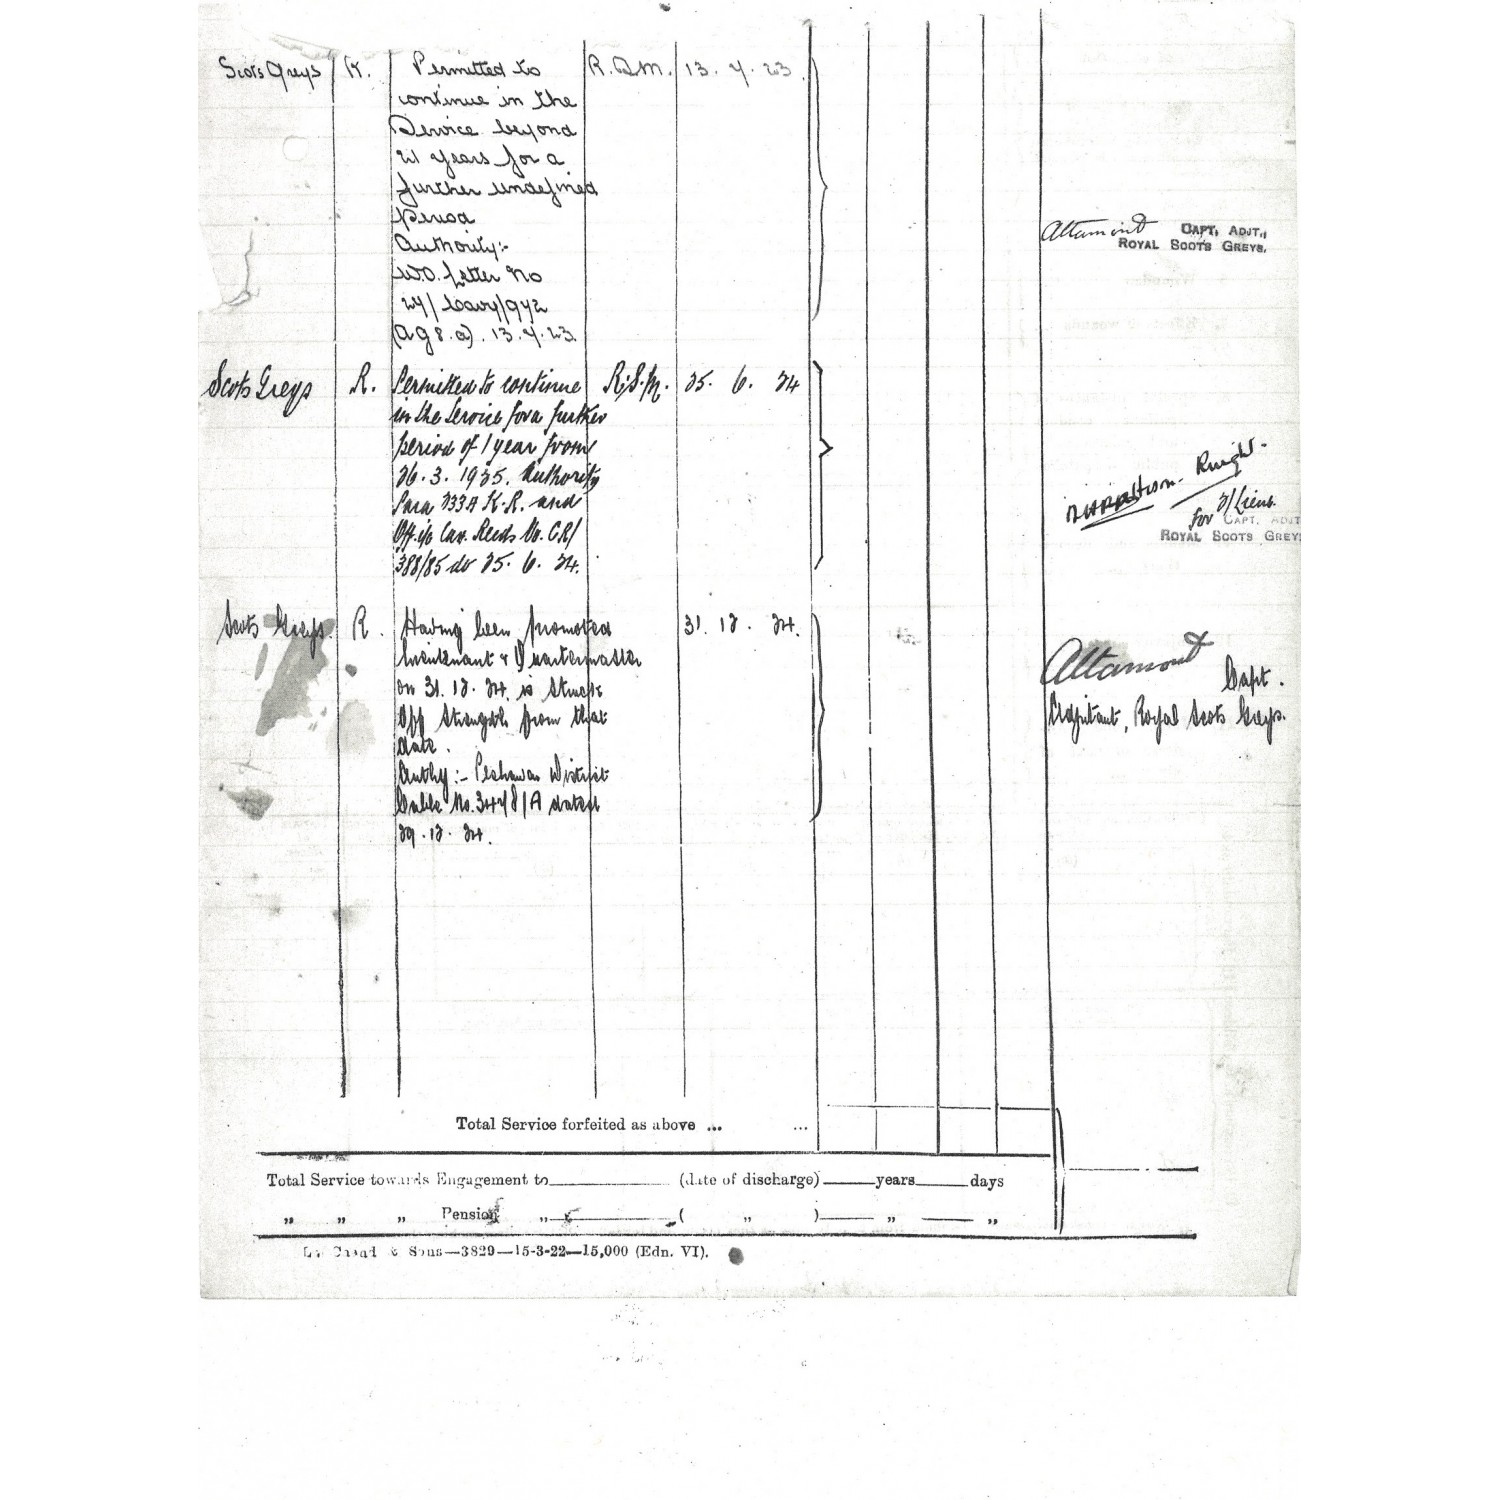 Scots Greys R. Permitted to R.S.M. 13. 7. 23.
continue in the
Service beyond
21 years for a
further undefined
period
Authority:-
W.O. Letter No
27/Cavy/972
(A G 8. a). 13. 7. 23.
Altamont CAPT, ADJT.,
ROYAL SCOTS GREYS.
Scots Greys R. Permitted to continue R.S.M. 25. 6. 24
in the Service for a further
period of 1 year from
26. 3. 1925. Authority
Para 233A K.R. and
Off. i/c Cav. Recds No. CR/
388/85 d/- 25. 6. 24.
Knight.
for 2/Lieut.
CAPT, ADJT
ROYAL SCOTS GREYS
Scots Greys. R. Having been promoted 31. 12. 24.
Lieutenant & Quartermaster
on 31. 12. 24. is struck
off strength from that
date.
Authy:- Peshawar District
Cable No. 3478/A dated
29. 12. 24.
Altamont Capt.
Adjutant, Royal Scots Greys.
Total Service forfeited as above ... ...
Total Service towards Engagement to (date of discharge) years days
„ „ „ Pension „ ( „ ) „ „
& Sons—3829—15-3-22—15,000 (Edn. VI).